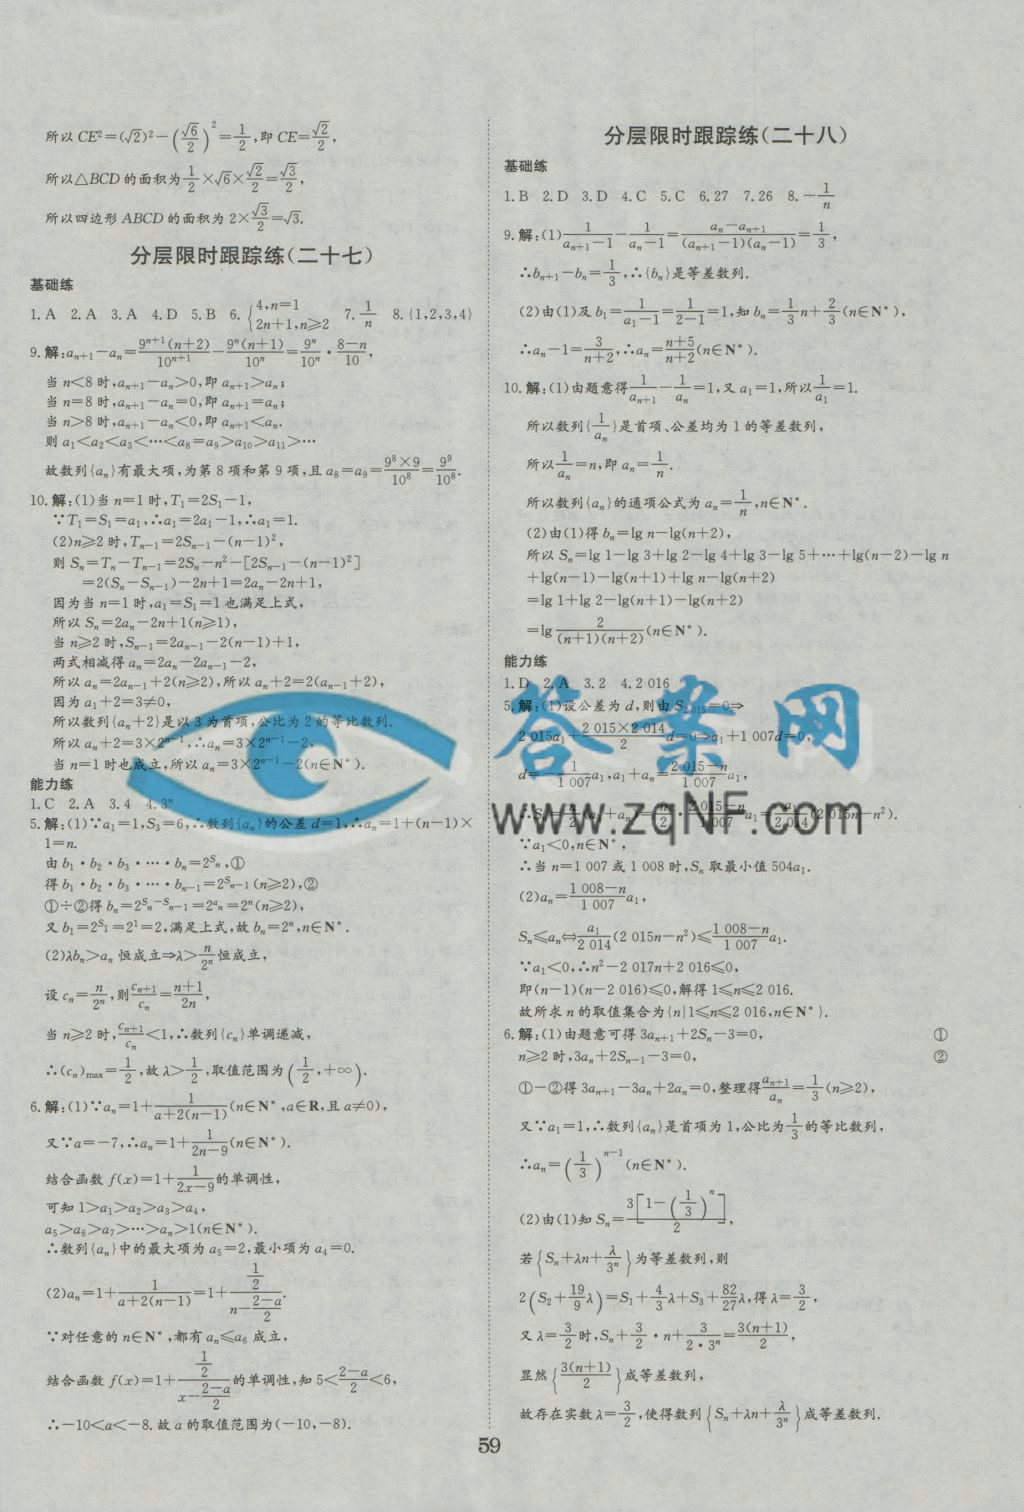 所以 CE²=(√2)²-(√6/2)²=1/2,即 CE=√2/2,
所以△BCD 的面积为 1/2×√6×√2/2=√3/2,
所以四边形 ABCD 的面积为 2×√3/2=√3.
分层限时跟踪练(二十七)
基础练
1.A 2.A 3.A 4.D 5.B 6.{4,n=1 2n+1,n≥2 7.1/n 8.{1,2,3,4}
9.解:aₙ₊₁-aₙ=9ⁿ⁺¹(n+2)/10ⁿ⁺¹-9ⁿ(n+1)/10ⁿ=9ⁿ/10ⁿ·(8-n)/10,
当 n<8 时,aₙ₊₁-aₙ>0,即 aₙ₊₁>aₙ;
当 n=8 时,aₙ₊₁-aₙ=0,即 aₙ₊₁=aₙ;
当 n>8 时,aₙ₊₁-aₙ<0,即 aₙ₊₁<aₙ.
则 a₁<a₂<a₃<…<a₈=a₉>a₁₀>a₁₁>…
故数列{aₙ}有最大项,为第 8 项和第 9 项,且 a₈=a₉=9⁸×9/10⁸=9⁹/10⁸.
10.解:(1)当 n=1 时,T₁=2S₁-1,
∵T₁=S₁=a₁,∴a₁=2a₁-1,∴a₁=1.
(2)n≥2 时,Tₙ₋₁=2Sₙ₋₁-(n-1)²,
则 Sₙ=Tₙ-Tₙ₋₁=2Sₙ-n²-[2Sₙ₋₁-(n-1)²]
=2(Sₙ-Sₙ₋₁)-2n+1=2aₙ-2n+1,
因为当 n=1 时,a₁=S₁=1 也满足上式,
所以 Sₙ=2aₙ-2n+1(n≥1),
当 n≥2 时,Sₙ₋₁=2aₙ₋₁-2(n-1)+1,
两式相减得 aₙ=2aₙ-2aₙ₋₁-2,
所以 aₙ=2aₙ₋₁+2(n≥2),所以 aₙ+2=2(aₙ₋₁+2),
因为 a₁+2=3≠0,
所以数列{aₙ+2}是以 3 为首项,公比为 2 的等比数列.
所以 aₙ+2=3×2ⁿ⁻¹,∴aₙ=3×2ⁿ⁻¹-2,
当 n=1 时也成立,所以 aₙ=3×2ⁿ⁻¹-2(n∈N*).
能力练
1.C 2.A 3.4 4.3ⁿ
5.解:(1)∵a₁=1,S₃=6,∴数列{aₙ}的公差 d=1,∴aₙ=1+(n-1)×
1=n.
由 b₁·b₂·b₃·…·bₙ=2^(Sₙ),①
得 b₁·b₂·b₃·…·bₙ₋₁=2^(Sₙ₋₁)(n≥2),②
①÷②得 bₙ=2^(Sₙ-Sₙ₋₁)=2^(aₙ)=2ⁿ(n≥2),
又 b₁=2^(S₁)=2¹=2,满足上式,故 bₙ=2ⁿ,n∈N*.
(2)λbₙ>aₙ 恒成立⇒λ>n/2ⁿ恒成立,
设 cₙ=n/2ⁿ,则 cₙ₊₁/cₙ=(n+1)/2n,
当 n≥2 时,cₙ₊₁/cₙ<1,∴数列{cₙ}单调递减,
∴(cₙ)max=1/2,故 λ>1/2,取值范围为(1/2,+∞).
6.解:(1)∵aₙ=1+1/(a+2(n-1))(n∈N*,a∈R,且 a≠0),
又∵a=-7,∴aₙ=1+1/(2n-9)(n∈N*).
结合函数 f(x)=1+1/(2x-9)的单调性,
可知 1>a₁>a₂>a₃>a₄,
a₅>a₆>a₇>…>aₙ>1(n∈N*).
∴数列{aₙ}中的最大项为 a₅=2,最小项为 a₄=0.
(2)aₙ=1+1/(a+2(n-1))=1+(1/2)/(n-(2-a)/2).
∵对任意的 n∈N*,都有 aₙ≤a₆ 成立,
结合函数 f(x)=1+(1/2)/(x-(2-a)/2)的单调性,知 5<(2-a)/2<6,
∴-10<a<-8.故 a 的取值范围为(-10,-8).
分层限时跟踪练(二十八)
基础练
1.B 2.D 3.D 4.C 5.C 6.27 7.26 8.-1/n
9.解:(1)1/(aₙ₊₁-1)-1/(aₙ-1)=(aₙ-aₙ₊₁)/((aₙ₊₁-1)(aₙ-1))=1/3,
∴bₙ₊₁-bₙ=1/3,∴{bₙ}是等差数列.
(2)由(1)及 b₁=1/(a₁-1)=1/(2-1)=1,知 bₙ=1/3n+2/3(n∈N*),
∴aₙ-1=3/(n+2),∴aₙ=(n+5)/(n+2)(n∈N*).
10.解:(1)由题意得 1/aₙ₊₁-1/aₙ=1,又 a₁=1,所以 1/a₁=1.
所以数列{1/aₙ}是首项、公差均为 1 的等差数列,
所以 1/aₙ=n,即 aₙ=1/n.
所以数列{aₙ}的通项公式为 aₙ=1/n,n∈N*.
(2)由(1)得 bₙ=lg n-lg(n+2),
所以 Sₙ=lg 1-lg 3+lg 2-lg 4+lg 3-lg 5+…+lg(n-2)-lg n
+lg(n-1)-lg(n+1)+lg n-lg(n+2)
=lg 1+lg 2-lg(n+1)-lg(n+2)
=lg 2/((n+1)(n+2))(n∈N*).
能力练
1.D 2.A 3.2 4.2 016
5.解:(1)设公差为 d,则由 S₂ ₀₁₅=0⇒
2 015a₁+(2 015×2 014)/2 d=0⇒a₁+1 007d=0,
d=-1/1 007 a₁,a₁+aₙ=(2 015-n)/1 007 a₁,
∴Sₙ=n/2(a₁+aₙ)=n/2·(2 015-n)/1 007 a₁=a₁/2 014(2 015n-n²).
∵a₁<0,n∈N*,
∴当 n=1 007 或 1 008 时,Sₙ 取最小值 504a₁.
(2)aₙ=(1 008-n)/1 007 a₁,
Sₙ≤aₙ⇔a₁/2 014(2 015n-n²)≤(1 008-n)/1 007 a₁.
∵a₁<0,∴n²-2 017n+2 016≤0,
即(n-1)(n-2 016)≤0,解得 1≤n≤2 016.
故所求 n 的取值集合为{n|1≤n≤2 016,n∈N*}.
6.解:(1)由题意可得 3aₙ₊₁+2Sₙ-3=0, ①
n≥2 时,3aₙ+2Sₙ₋₁-3=0, ②
①-②得 3aₙ₊₁-3aₙ+2aₙ=0,整理得 aₙ₊₁/aₙ=1/3(n≥2),
又∵a₁=1,∴数列{aₙ}是首项为 1,公比为 1/3 的等比数列,
∴aₙ=(1/3)ⁿ⁻¹(n∈N*).
(2)由(1)知 Sₙ=3[1-(1/3)ⁿ]/2,
若{Sₙ+λn+λ/3ⁿ}为等差数列,则
2(S₂+19/9λ)=S₁+4/3λ+S₃+82/27λ,得 λ=3/2,
又 λ=3/2 时,Sₙ+3/2·n+3/(2·3ⁿ)=3(n+1)/2,
显然{3(n+1)/2}成等差数列,
故存在实数 λ=3/2,使得数列{Sₙ+λn+λ/3ⁿ}成等差数列.
答案网
www.zqNF.com
59